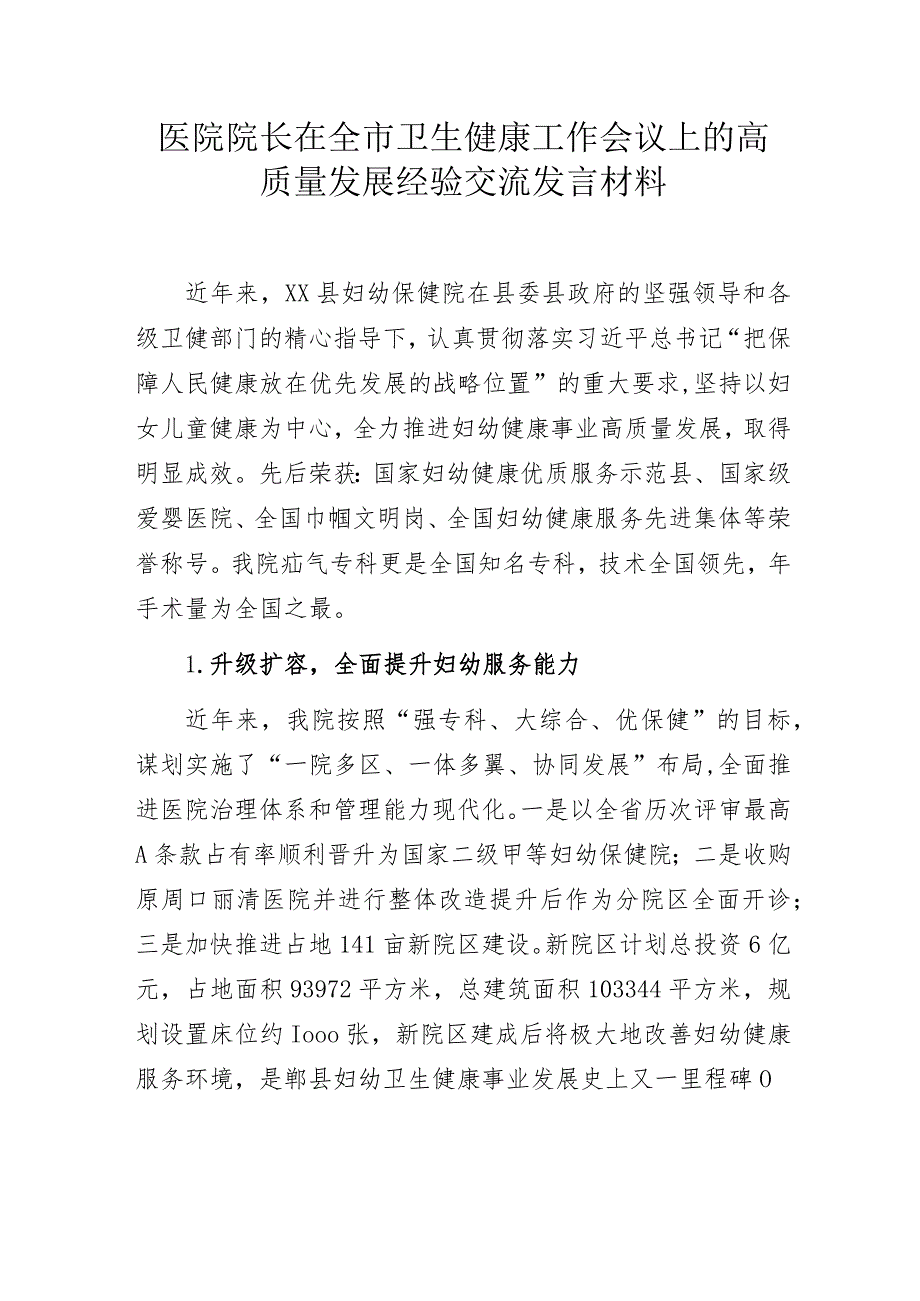 医院院长在全市卫生健康工作会议上的高
质量发展经验交流发言材料
近年来，XX县妇幼保健院在县委县政府的坚强领导和各
级卫健部门的精心指导下，认真贯彻落实习近平总书记“把保
障人民健康放在优先发展的战略位置”的重大要求,坚持以妇
女儿童健康为中心，全力推进妇幼健康事业高质量发展，取得
明显成效。先后荣获：国家妇幼健康优质服务示范县、国家级
爱婴医院、全国巾帼文明岗、全国妇幼健康服务先进集体等荣
誉称号。我院疝气专科更是全国知名专科，技术全国领先，年
手术量为全国之最。
1.升级扩容，全面提升妇幼服务能力
近年来，我院按照“强专科、大综合、优保健”的目标，
谋划实施了“一院多区、一体多翼、协同发展”布局,全面推
进医院治理体系和管理能力现代化。一是以全省历次评审最高
A条款占有率顺利晋升为国家二级甲等妇幼保健院；二是收购
原周口丽清医院并进行整体改造提升后作为分院区全面开诊；
三是加快推进占地141亩新院区建设。新院区计划总投资6亿
元，占地面积93972平方米，总建筑面积103344平方米，规
划设置床位约Iooo张，新院区建成后将极大地改善妇幼健康
服务环境，是郸县妇幼卫生健康事业发展史上又一里程碑O